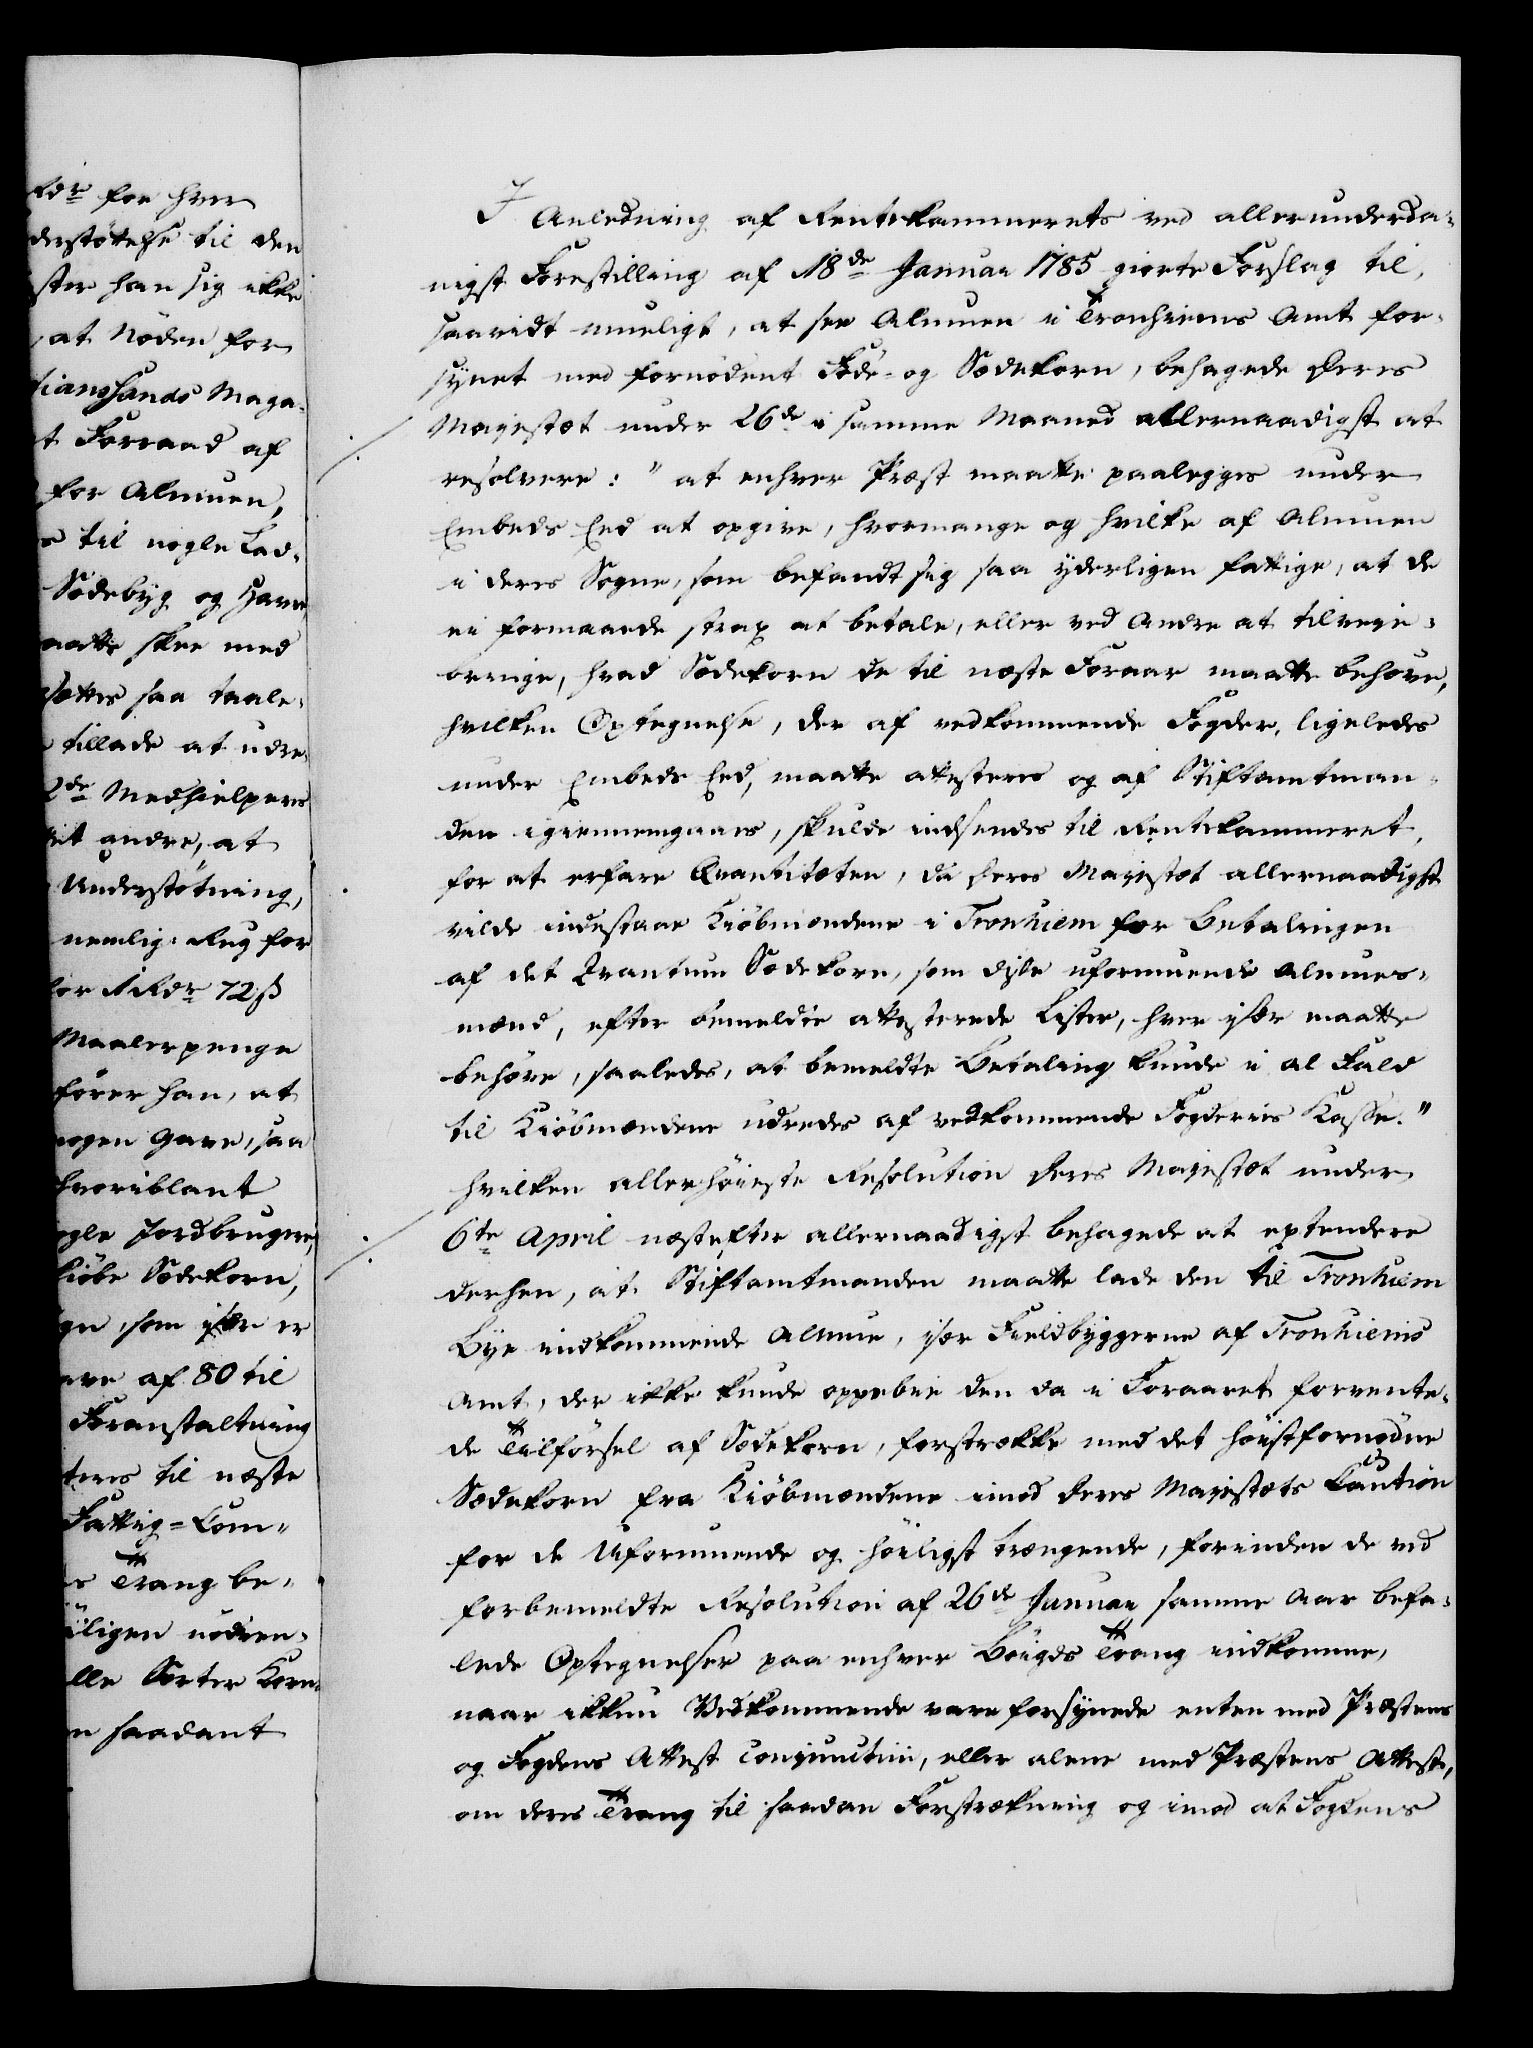 Rdr for hver
derstöttelse til den
ster han sig ikke
, at Nöden for
tianssands Maga-
t Forraad af
for Almuen,
s til nogle Lad-
Sædebyg og Havre
aatte skee med
sættes saa taale-
tillade at udre-
2de Medhielpere
eit andre, at
Understötning,
nemlig: Rug for
for 1 Rdr 72 ß
Maalerpenge
förer han, at
nogen Gave, saa
hvoriblant
ogle Jordbrugere,
kiöbe Sædekorn,
gn, som især er
are af 80 til
Foranstaltning
teres til næste
Fattig-Com-
s Trang be-
iligen nödven-
lle Sorter Korn-
n saadant
I Anledning af Rentekammerets ved allerunderda-
nigst Forestilling af 18de Januar 1785 giorte Forslag til,
saavidt mueligt, at see Almuen i Tronhiems Amt for-
synet med fornödent Föde- og Sædekorn, behagede Deres
Majestæt under 26de i samme Maaned allernaadigst at
resolvere: "at enhver Præst maatte paalegges under
Embeds Eed at opgive, hvormange og hvilke af Almuen
i deres Sogne, som befandt sig saa yderligen fattige, at de
ei formaaede strax at betale, eller ved Andre at tilveie-
bringe, hvad Sædekorn de til næste Foraar maatte behöve,
hvilken Optegnelse, der af vedkommende Fogder, ligeledes
under Embeds Eed, maatte attesteres og af Stiftamtman-
den igiennemgaaes, skulde indsendes til Rentekammeret,
for at erfare Qvantiteten, da Deres Majestæt allernaadigst
vilde indestaae Kiöbmændene i Tronhiem for Betalingen
af det Qvantum Sædekorn, som disse uformuende Almues-
mænd, efter bemeldte attesterede Lister, hver især maatte
behöve, saaledes, at bemeldte Betaling kunde i al Fald
til Kiöbmændene udredes af vedkommende Fogderies Kasse."
hvilken allerhöieste Resolution Deres Majestæt under
6te April næstefter allernaadigst behagede at extendere
derhen, at Stiftamtmanden maatte lade den til Tronhiem
Bye indkommende Almue, især Fieldbyggerne af Tronhiems
Amt, der ikke kunde oppebie den da i Foraaret forvente-
de Tilförsel af Sædekorn, forstrække med det höistfornödne
Sædekorn fra Kiöbmændene imod Deres Majestæts Caution
for de Uformuende og höiligst trængende, forinden de ved
forbemeldte Resolution af 26de Januar samme Aar befa-
lede Optegnelser paa enhver Böigds Trang indkomme,
naar ikkun Vedkommende vare forsynede enten med Præstens
og Fogdens Attest conjunctim, eller alene med Præstens Attest,
om deres Trang til saadan Forstrækning og imod at Fogdens